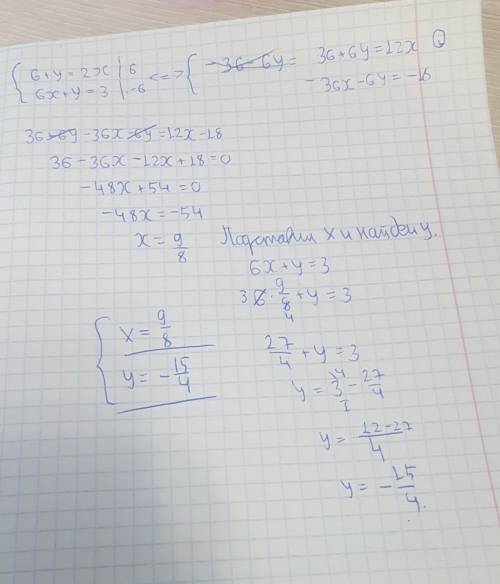 { 6+y=2x | 6 <=> { -36-6y= 36+6y=12x
6x+y=3 | -6 -36x-6y=-18
36+6y-36x-6y=12x-18
36-36x-12x+18=0
-48x+54=0
-48x=-54
x=9/8
Подставим x и найдем y.
6x+y=3
3 6·9/8 4+y=3
27/4+y=3
y=3/1-27/4
y=12-27/4
y=-15/4.
{ x=9/8
y=-15/4